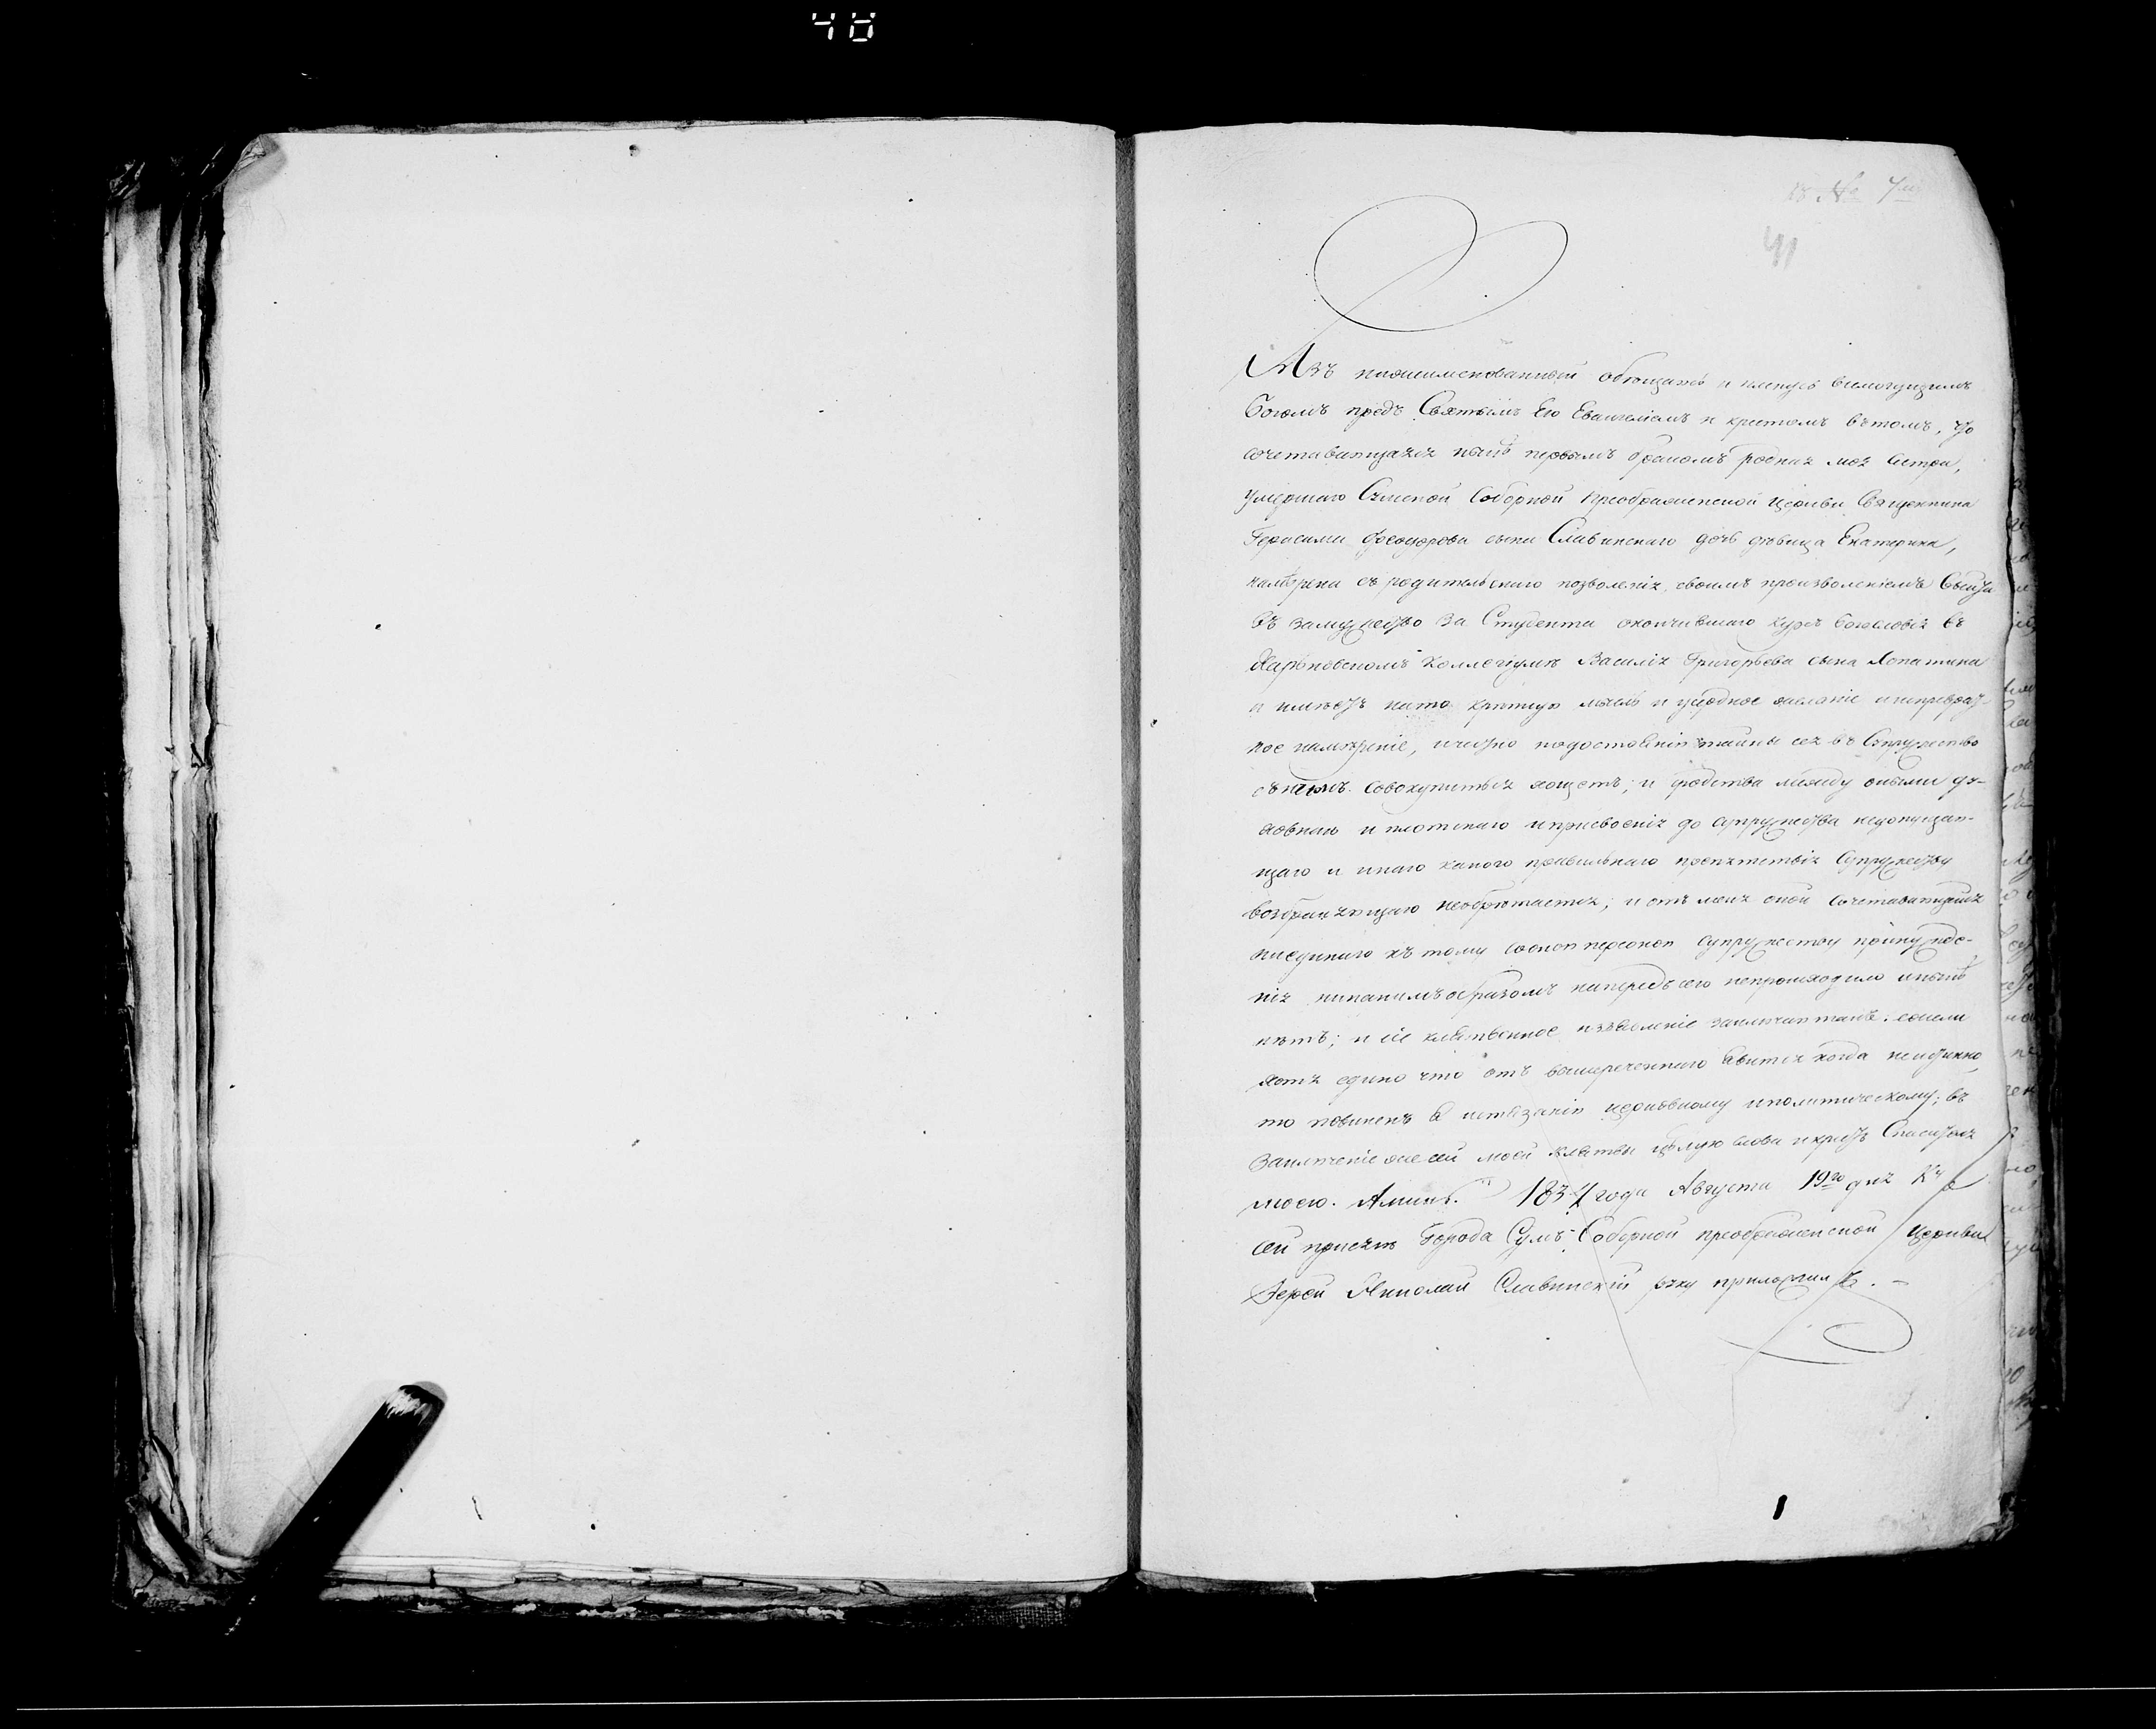 48
№ 7й
41
Азъ нижеименованный обѣщаюсь и клянусь всемогущимъ
Богомъ предъ Святымъ Его Евангеліемъ и крестомъ въ томъ, что
сочетавающаяся нынѣ первымъ бракомъ родная моя сестра,
умершаго Сумской Соборной Преображенской Церкви Священника
Герасима Феодорова сына Славинскаго дочь дѣвица Екатерина,
намѣрена съ родительскаго позволенія, своимъ произволеніемъ выйти
въ замужество за Студента окончившаго курсъ богословія въ
Харьковскомъ Коллегіумѣ Василія Григорьева сына Лопатина
и имѣетъ на то крѣпкую мысль и усердное желаніе и непревратное
намѣреніе, и честно по достоянію тайны сея въ Супружество
съ нимъ совокупитися хощетъ; и сродства между оными духовнаго
и плотскаго и присвоенія до супружества недопущающаго
и инаго какого правильнаго препятствія Супружеству
возбраняющаго необрѣтается; и отъ меня оной сочетавающейся
ниединаго къ тому со оною персоною супружеству принужденія
никакимъ образомъ напередъ сего непроисходило и нынѣ
нѣтъ; и сіе клятвенное изъявленіе заключаю такъ: ежели
хотя едино что отъ вышереченнаго явится когда неистинно,
то повиненъ я истязанію церковному и политическому; въ
заключеніе же сей моей клятвы цѣлую слова и крестъ Спасителя
моего. Аминь. 1837 года Августа 19го дня Къ
сей присягѣ Города Сумъ Соборной преображенской Церкви
Іерей Николай Славинскій руку приложилъ. –